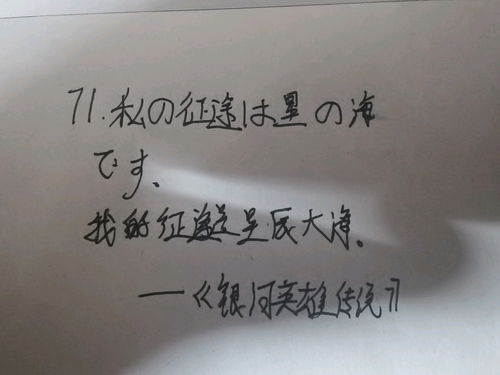 71.私の征途は星の海
です、
我的征途是星辰大海。
——《银河英雄传说》